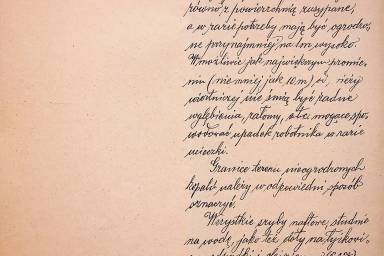 równo z powierzchnią zasypane,
a w razie potrzeby mają być ogrodzo-
ne przynajmniej na 1m wysoko.
W możliwie jak największym promie-
niu (nie mniej jak 10 m) od wieży
wiertniczej nie śmią być żadne
wgłębienia, załomy, etc. mogące spo-
wodować upadek robotnika w razie
ucieczki.
Granice terenu nieogrodzonych
kopalń należy w odpowiedni sposób
oznaczyć.
Wszystkie szyby naftowe, studnie
na wodę, jako też doły na łyżkowi-